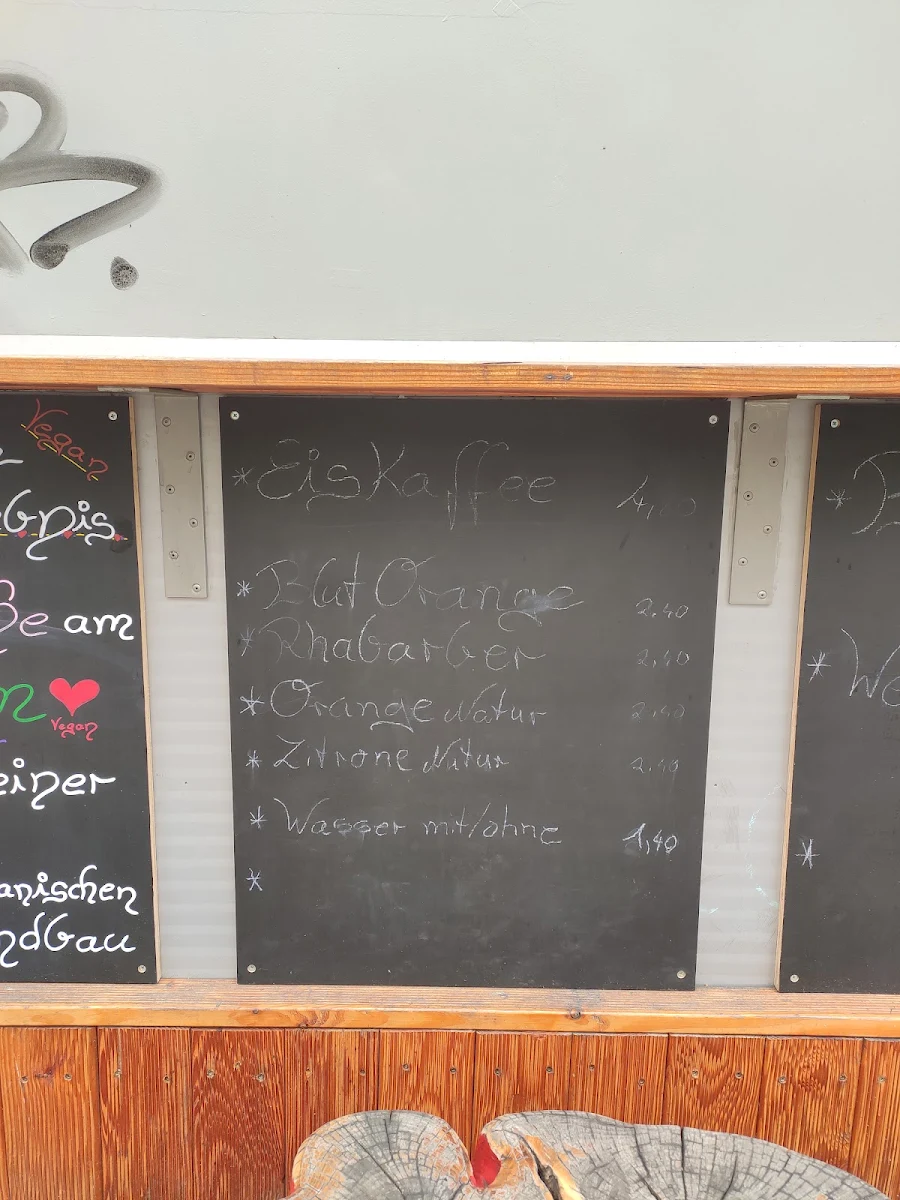 Vegan
am
Vegan
einer
anischen
ndbau
* EisKaffee 4,00
* Blut Orange 2.40
* Rhabarber 2.40
* Orange Natur 2.40
* Zitrone Natur 2.40
* Wasser mit/ohne 1,40
*